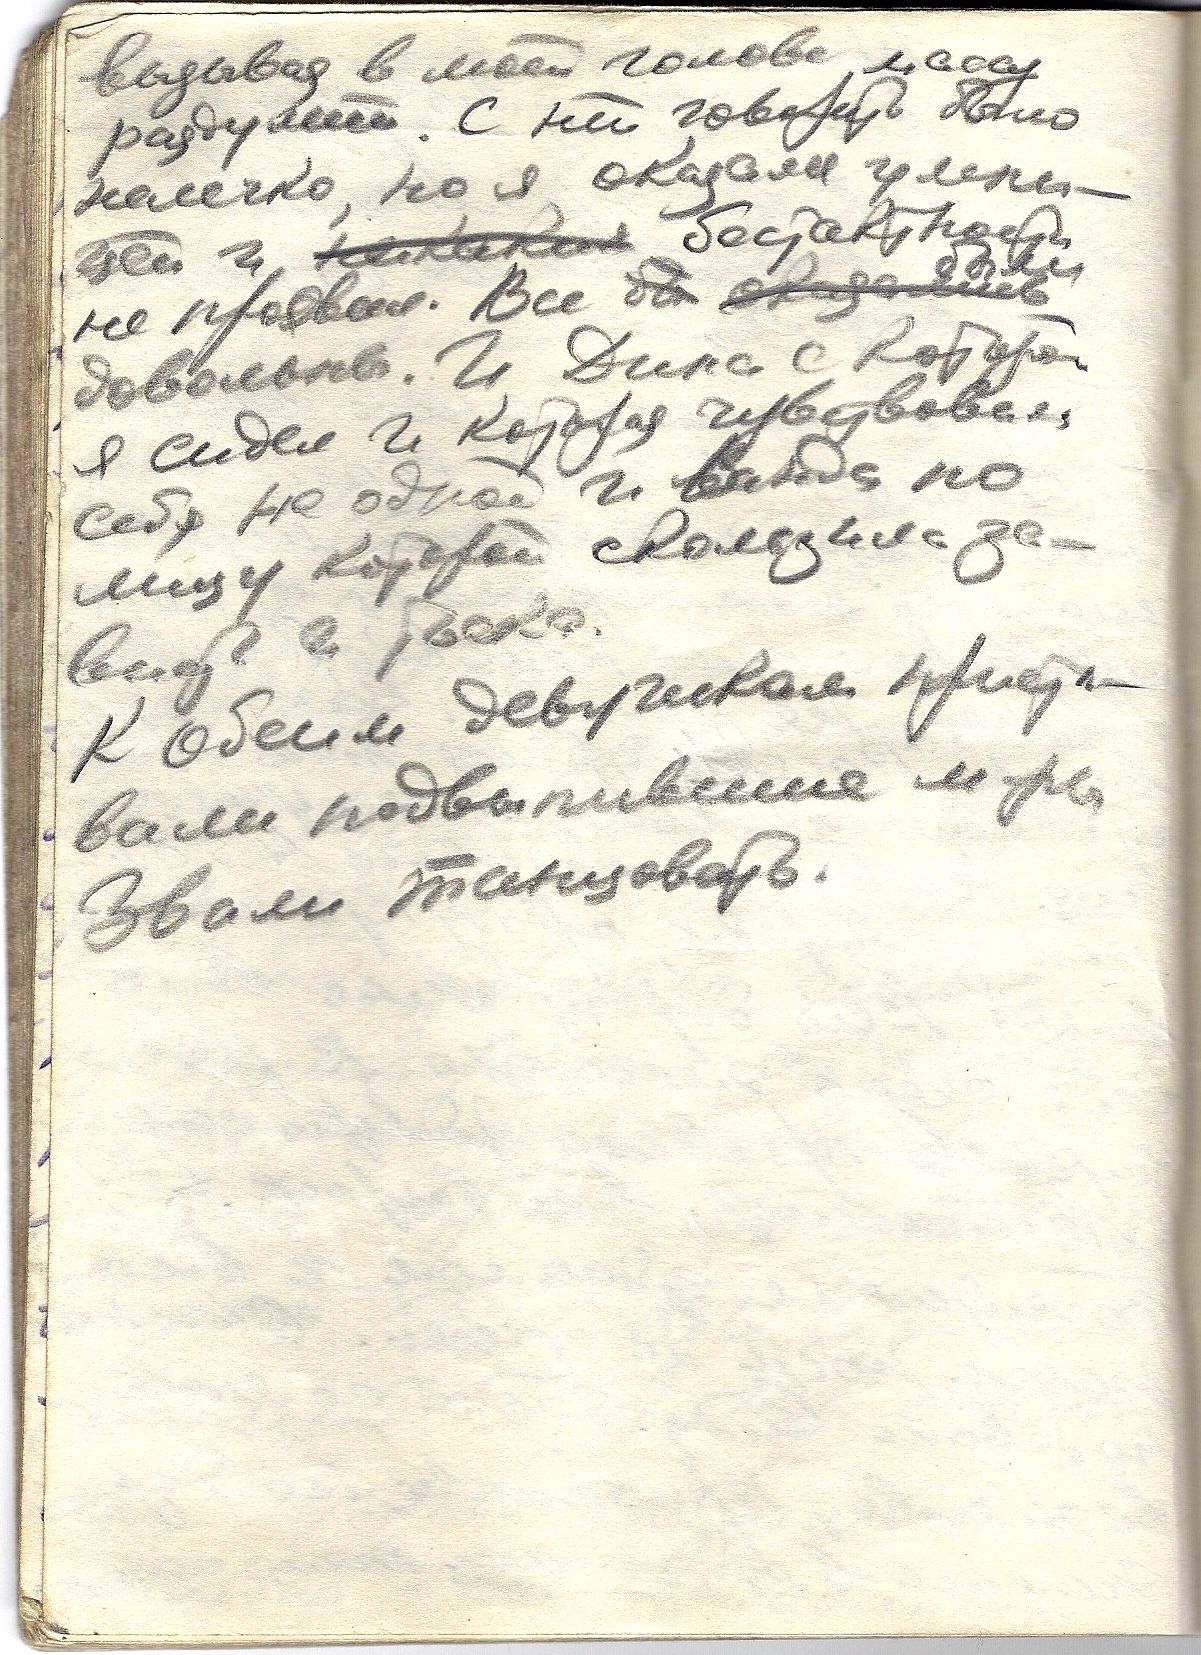 вызывая в моей голове массу
раздумий. С ней говорить было
нелегко, но я оказался умни-
цей и никаких бестактности
не проявил. Все бы оказались были
довольны. И Дина с которой
я сидел и которая чувствовала
себя не одной и Ванда по
лицу которой скользила за-
висть и тоска.
К обеим девушкам приста-
вали подвыпившие
Звали танцовать.